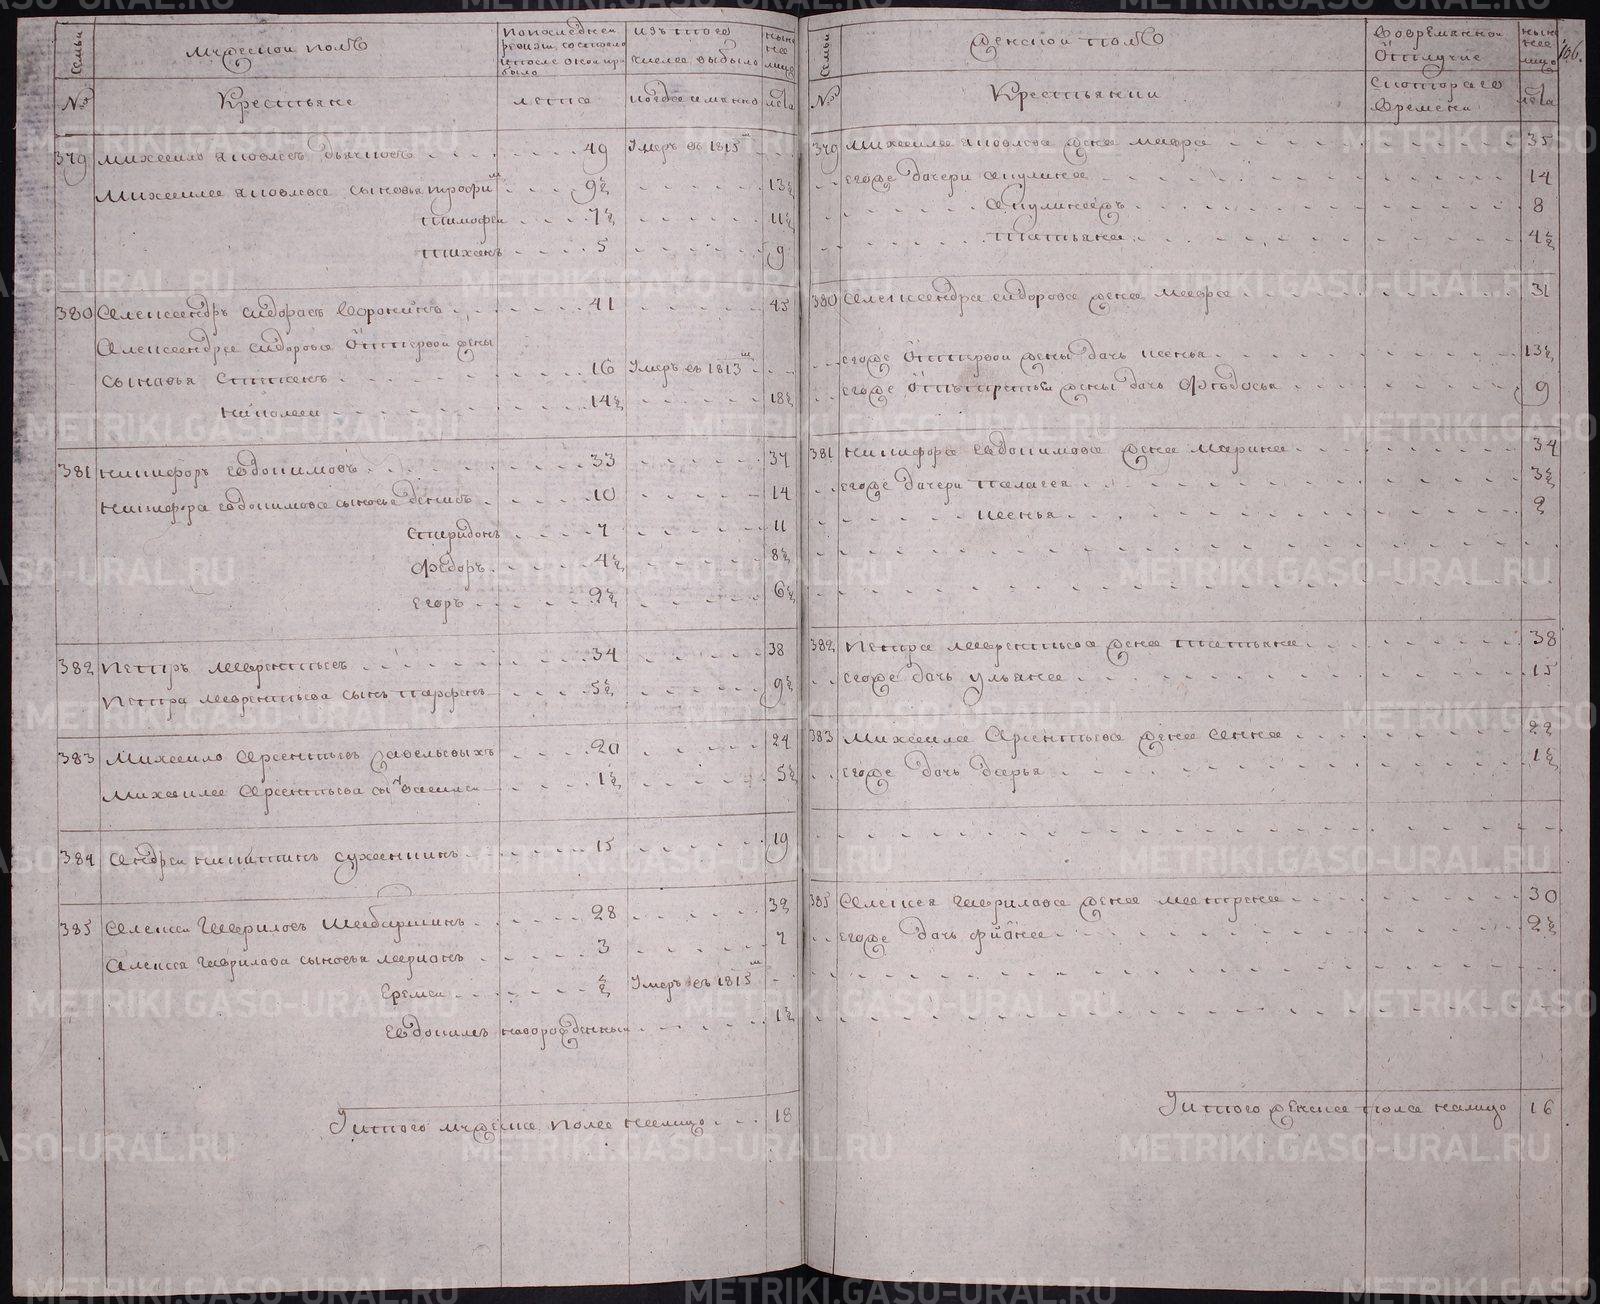 Семьи
мужескои полъ
по последнеи
ревизи состояло
и после онои при
было
изъ того
числа выбыло
ныне
лицо
№
Крестьяне
лета
когда именно
лета
379 Михаило яковлевъ дьячковъ 49 Умеръ въ 1815м
Михаила яковлева сыновья трофим 9½ 13½
тимофеи 7½ 11½
тиханъ 5 9
380 Александръ сидоравъ Воронинъ 41 45
Александра сидорова отпервои жены
сынавья степанъ 16 Умеръ въ 1813м
николаи 14½ 18½
381 никифоръ евдокимовъ 33 37
никифора евдокимова сыновья денисъ 10 14
спиридонъ 7 11
федоръ 4½ 8½
егоръ 2½ 6½
382 петръ лаврентьевъ 34 38
петра лаврентьева сынъ парфенъ 5½ 9½
383 Михаило Арсентьевъ савельевыхъ 20 24
Михаила Арсентьева сынъ василеи 1½ 5½
384 Андреи никитинъ суханкинъ 15 19
385 Алексеи Гавриловъ Шабаршинъ 28 32
Алексея гаврилава сыновья ларионъ 3 7
Еремеи ½ Умеръ въ 1815м
Евдокимъ наворожденныи 1½
Итого мужеска пола налицо 18
Семьи
женскои полъ
Вовременнои
Отлучке
ныне
лицо
166.
№
Крестьянки
с которого
времени
лета
379 Михаила яковлева жена мавра 35
егоже дачери акулина 14
Акулинаждъ 8
татьяна 4½
380 Александра сидорова жена мавра 31
егоже отпервои жены дачь ксенья 13½
егоже отвторои жены дачь федосья 9
381 никифора евдокимова жена марина 34
егоже дачери пелагея 3½
ксенья 2
382 петра лаврентьева жена татьяна 38
егоже дачь ульяна 15
383 Михаила Арсентьева жена Анна 22
егоже дачь дарья 1½
385 Алексея гаврилава жена матрена 30
егоже дачь фиана 2½
Итого женска пола налицо 16
METRIKI.GASO-URAL.RU